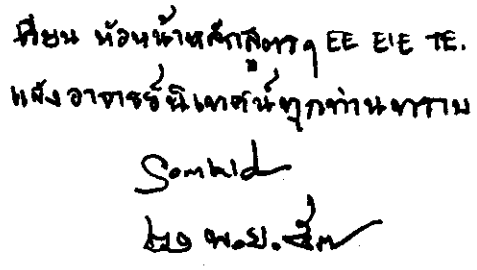 เรียน หัวหน้าหลักสูตรฯ EE EIE TE.
แจ้งอาจารย์นิเทศน์ทุกท่านทราบ
Somkid
๒๑ พ.ย. ๕๓